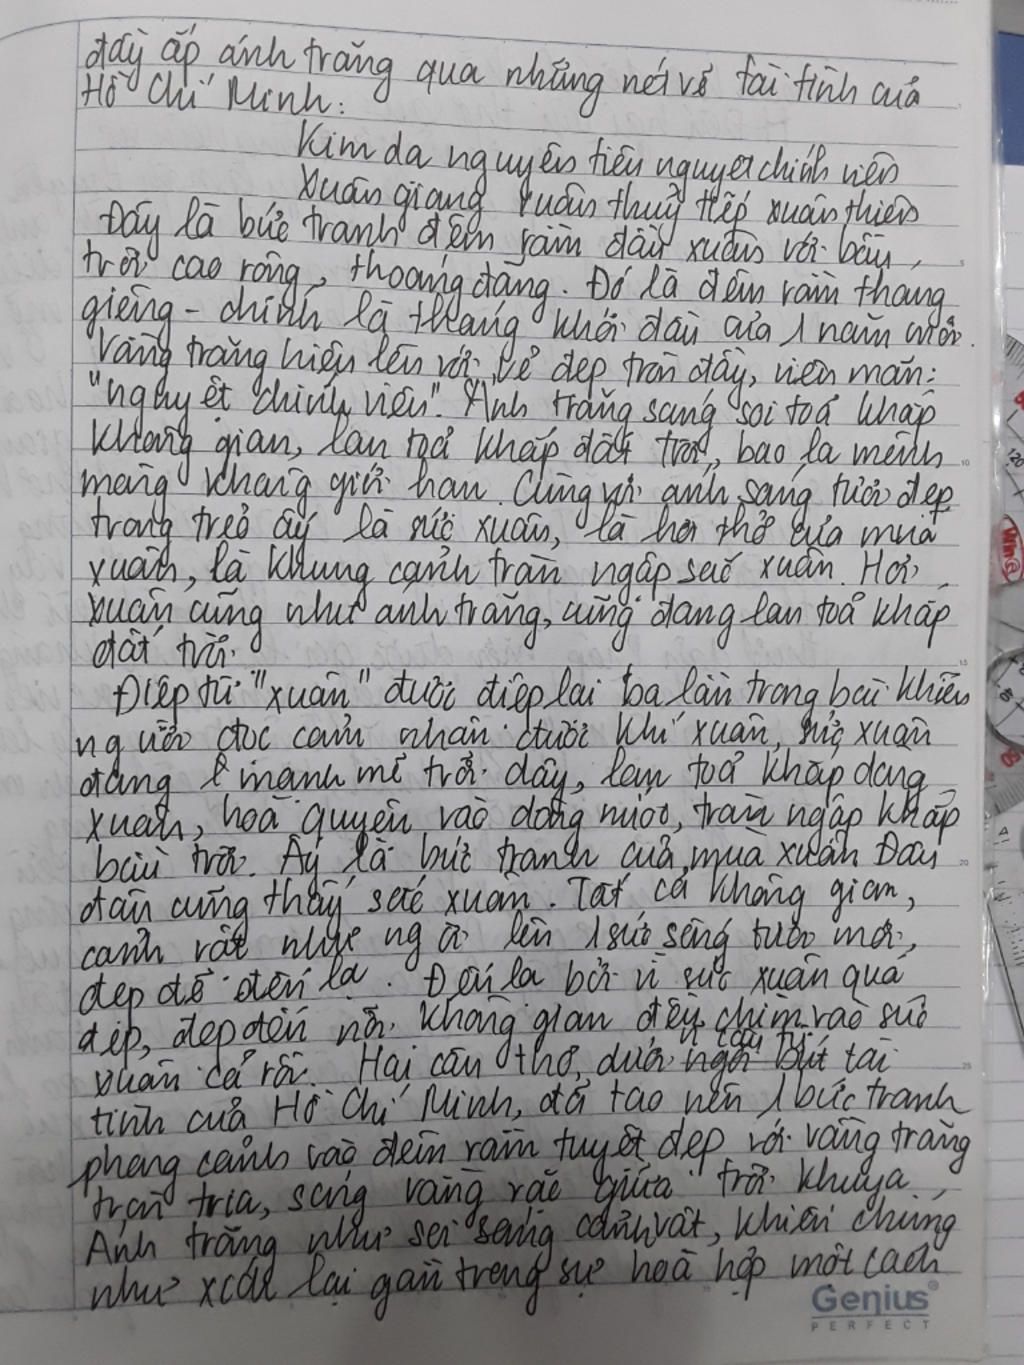 đầy ắp ánh trăng qua những nét vẽ tài tình của
Hồ Chí Minh:
Kim dạ nguyên tiêu nguyệt chính viên
Xuân giang xuân thuỷ tiếp xuân thiên
Đây là bức tranh đêm rằm đầu xuân với bầu
trời cao rộng, thoáng đãng. Đó là đêm rằm tháng
giêng - chính là tháng khởi đầu của 1 năm mới.
Vầng trăng hiện lên với vẻ đẹp tròn đầy, viên mãn:
"nguyệt chính viên". Ánh trăng sáng soi toả khắp
không gian, lan toả khắp đất trời, bao la mênh
mông không giới hạn. Cùng với ánh sáng tươi đẹp
trong trẻo ấy là sức xuân, là hơi thở của mùa
xuân, là khung cảnh tràn ngập sắc xuân. Hơi
xuân cũng như ánh trăng, cũng đang lan toả khắp
đất trời.
Điệp từ "xuân" được điệp lại ba lần trong bài khiến
người đọc cảm nhận được khí xuân, sức xuân
đang mạnh mẽ trỗi dậy, lan toả khắp dòng
xuân, hoà quyện vào dòng nước, tràn ngập khắp
bầu trời. Ấy là bức tranh của mùa xuân. Đâu
đâu cũng thấy sắc xuân. Tất cả không gian,
cảnh vật như ngời lên 1 sức sống tươi mới,
đẹp đẽ đến lạ. Đến lạ bởi vì sức xuân quá
đẹp, đẹp đến nỗi không gian đều chìm vào sức
xuân cả rồi. Hai câu thơ, dưới ngòi bút tài
tình của Hồ Chí Minh, đã tạo nên 1 bức tranh
phong cảnh vào đêm rằm tuyệt đẹp với vầng trăng
tròn trịa, sáng vằng vặc giữa trời khuya
Ánh trăng như soi sáng cảnh vật, khiến chúng
như xích lại gần trong sự hoà hợp một cách
Genius
PERFECT